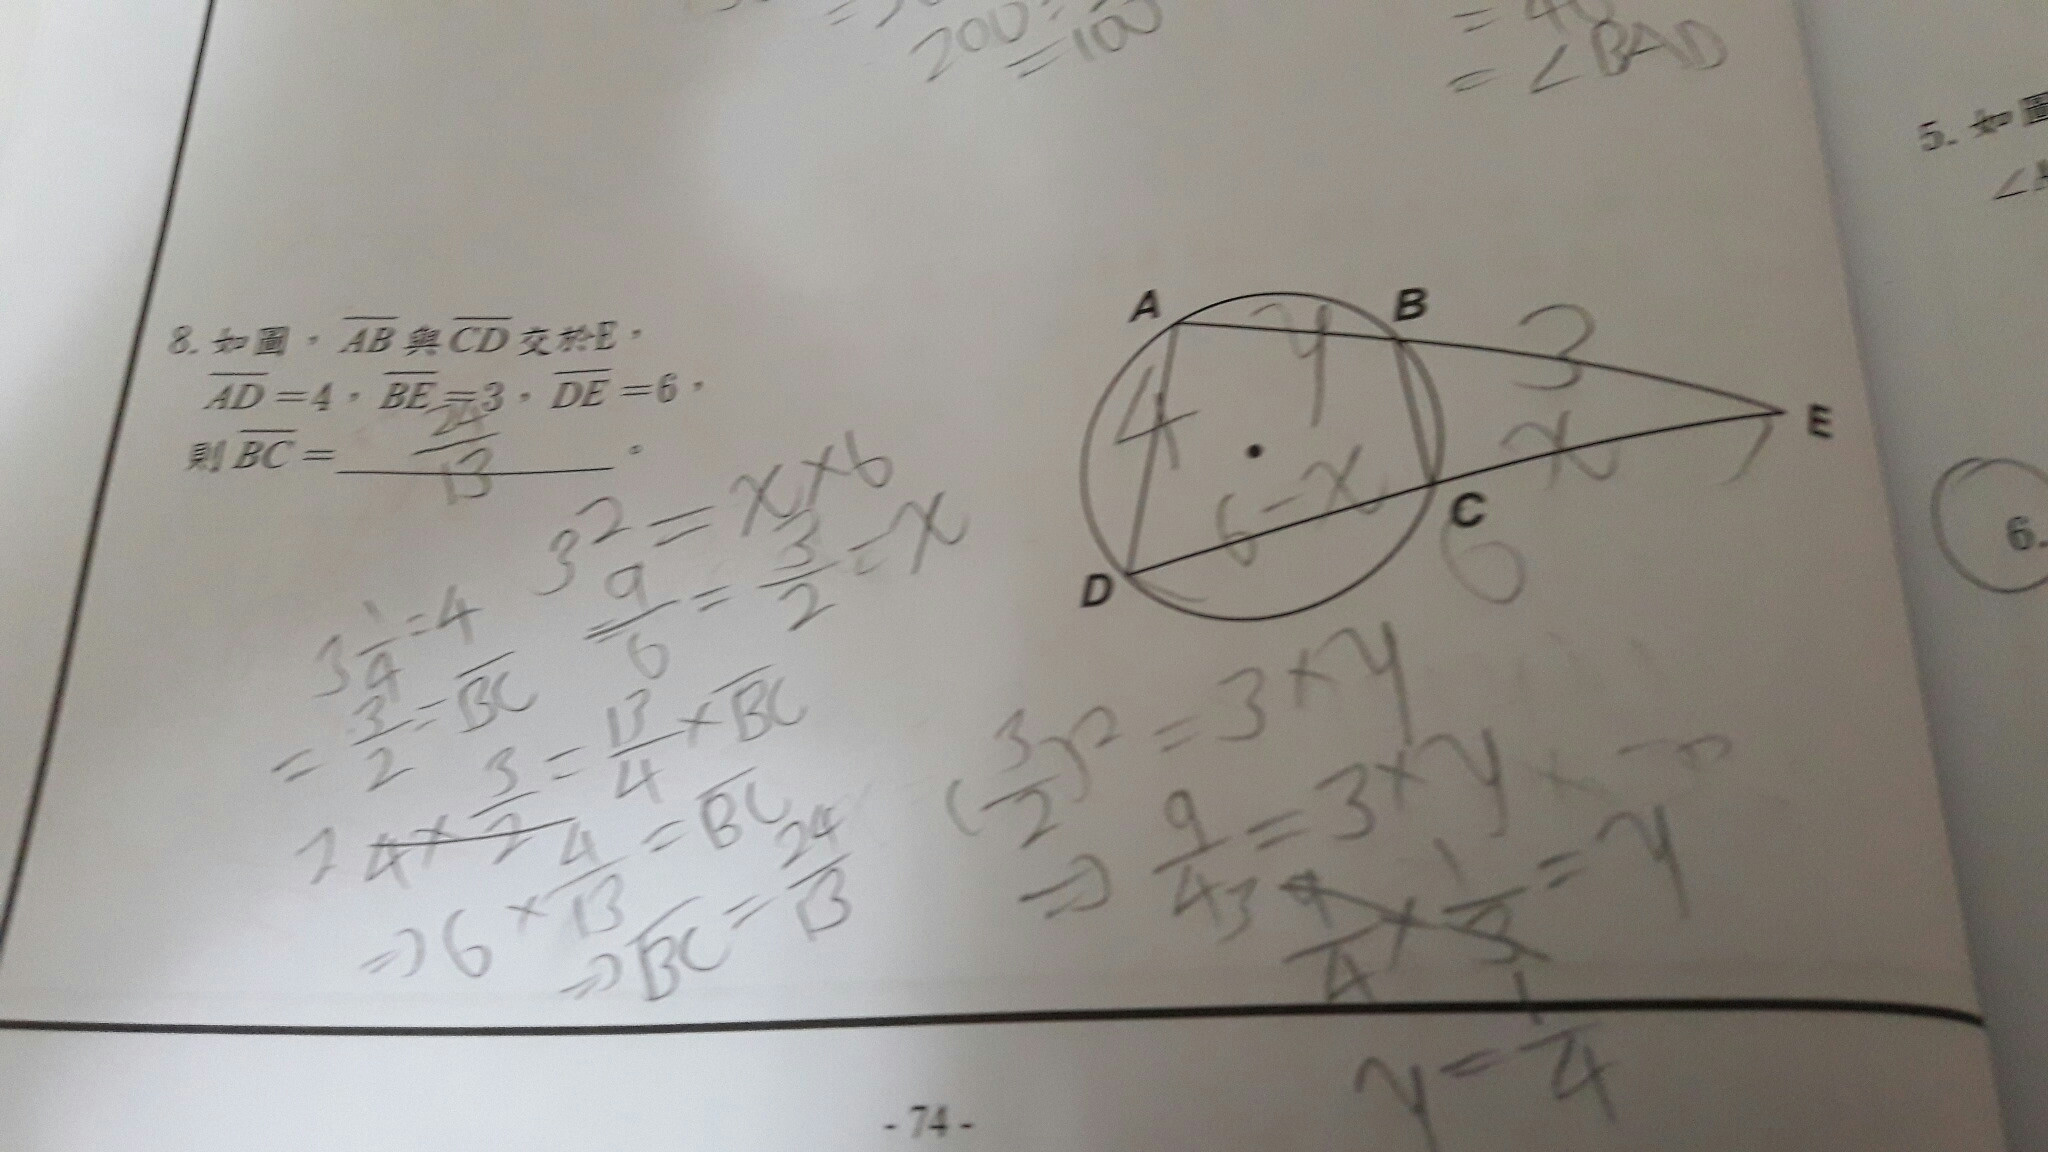 200
=100
= ∠BAD
8. 如圖，AB與CD交於E，
AD=4，BE=3，DE=6，
則BC= 24/13 。
A
B
E
C
D
4
y
3
x
6-x
6
3² = x×6
9/6 = 3/2 = x
= 3/2 = BC
3/2 = 13/4 × BC
4×3/2
⇒ 6 × 4/13 = BC
⇒ BC = 24/13
(3/2)² = 3×y
⇒ 9/4 = 3×y
9/4 × 1/3 = y
- 74 -
5. 如圖
6.